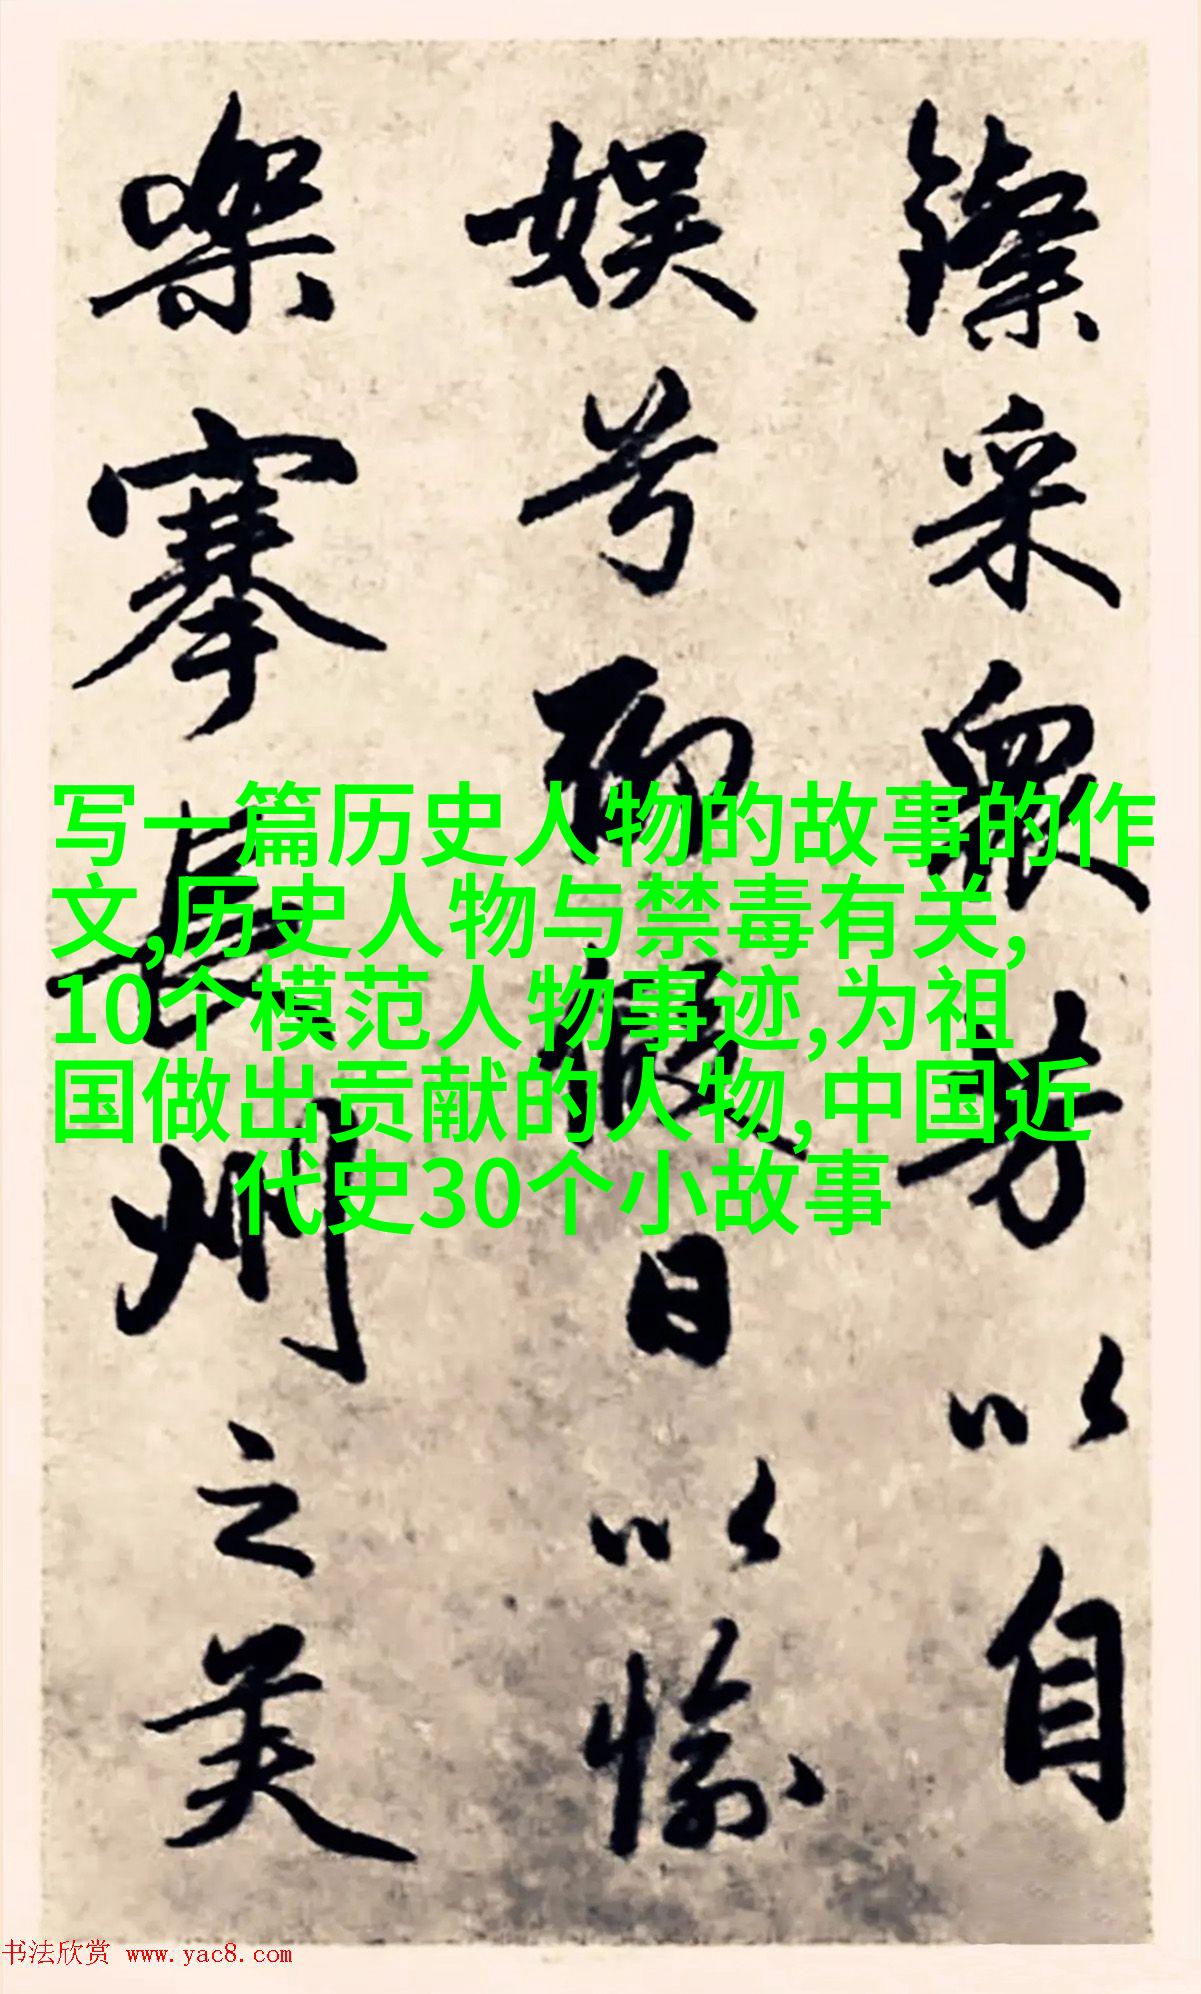 鑗采衆芳以自
娱兮聊假日以愉
樂搴長州之芙
写一篇历史人物的故事的作
文,历史人物与禁毒有关,
10个模范人物事迹,为祖
国做出贡献的人物,中国近
代史30个小故事
书法欣赏 www.yac8.com